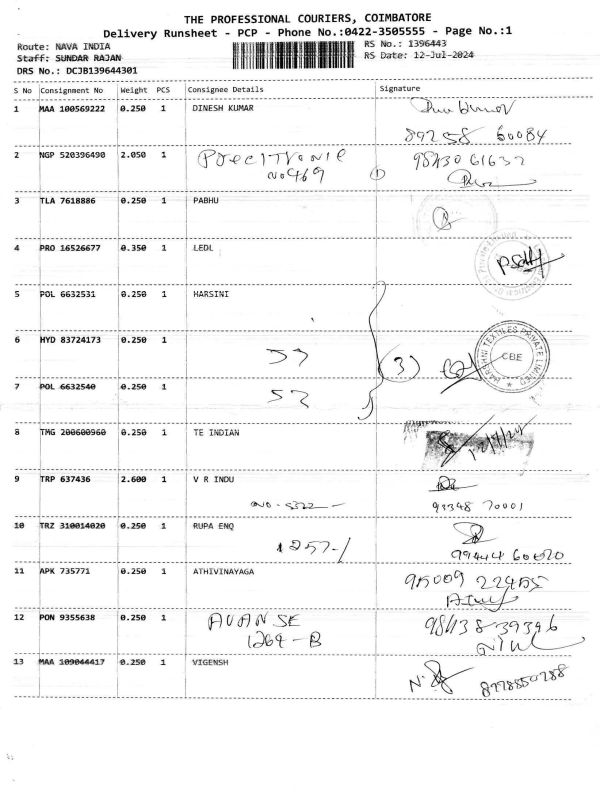 THE PROFESSIONAL COURIERS, COIMBATORE
Delivery Runsheet - PCP - Phone No.:0422-3505555 - Page No.:1
Route: NAVA INDIA RS No.: 1396443
Staff: SUNDAR RAJAN RS Date: 12-Jul-2024
DRS No.: DCJB139644301
S No Consignment No Weight PCS Consignee Details Signature
1 MAA 100569222 0.250 1 DINESH KUMAR
89258 60084
2 NGP 520396490 2.050 1
No 469 1
3 TLA 7618886 0.250 1 PABHU
4 PRO 16526677 0.350 1 LEDL
5 POL 6632531 0.250 1 HARSINI
6 HYD 83724173 0.250 1
3
HARSHNI TEXTILES PRIVATE LIMITED
CBE
7 POL 6632540 0.250 1
8 TMG 200600960 0.250 1 TE INDIAN
12/7/24
9 TRP 637436 2.600 1 V R INDU
93348 70001
10 TRZ 310014020 0.250 1 RUPA ENQ
1257-/
99444 60020
11 APK 735771 0.250 1 ATHIVINAYAGA
12 PON 9355638 0.250 1 AVANSE
1264-B
13 MAA 109044417 0.250 1 VIGENSH